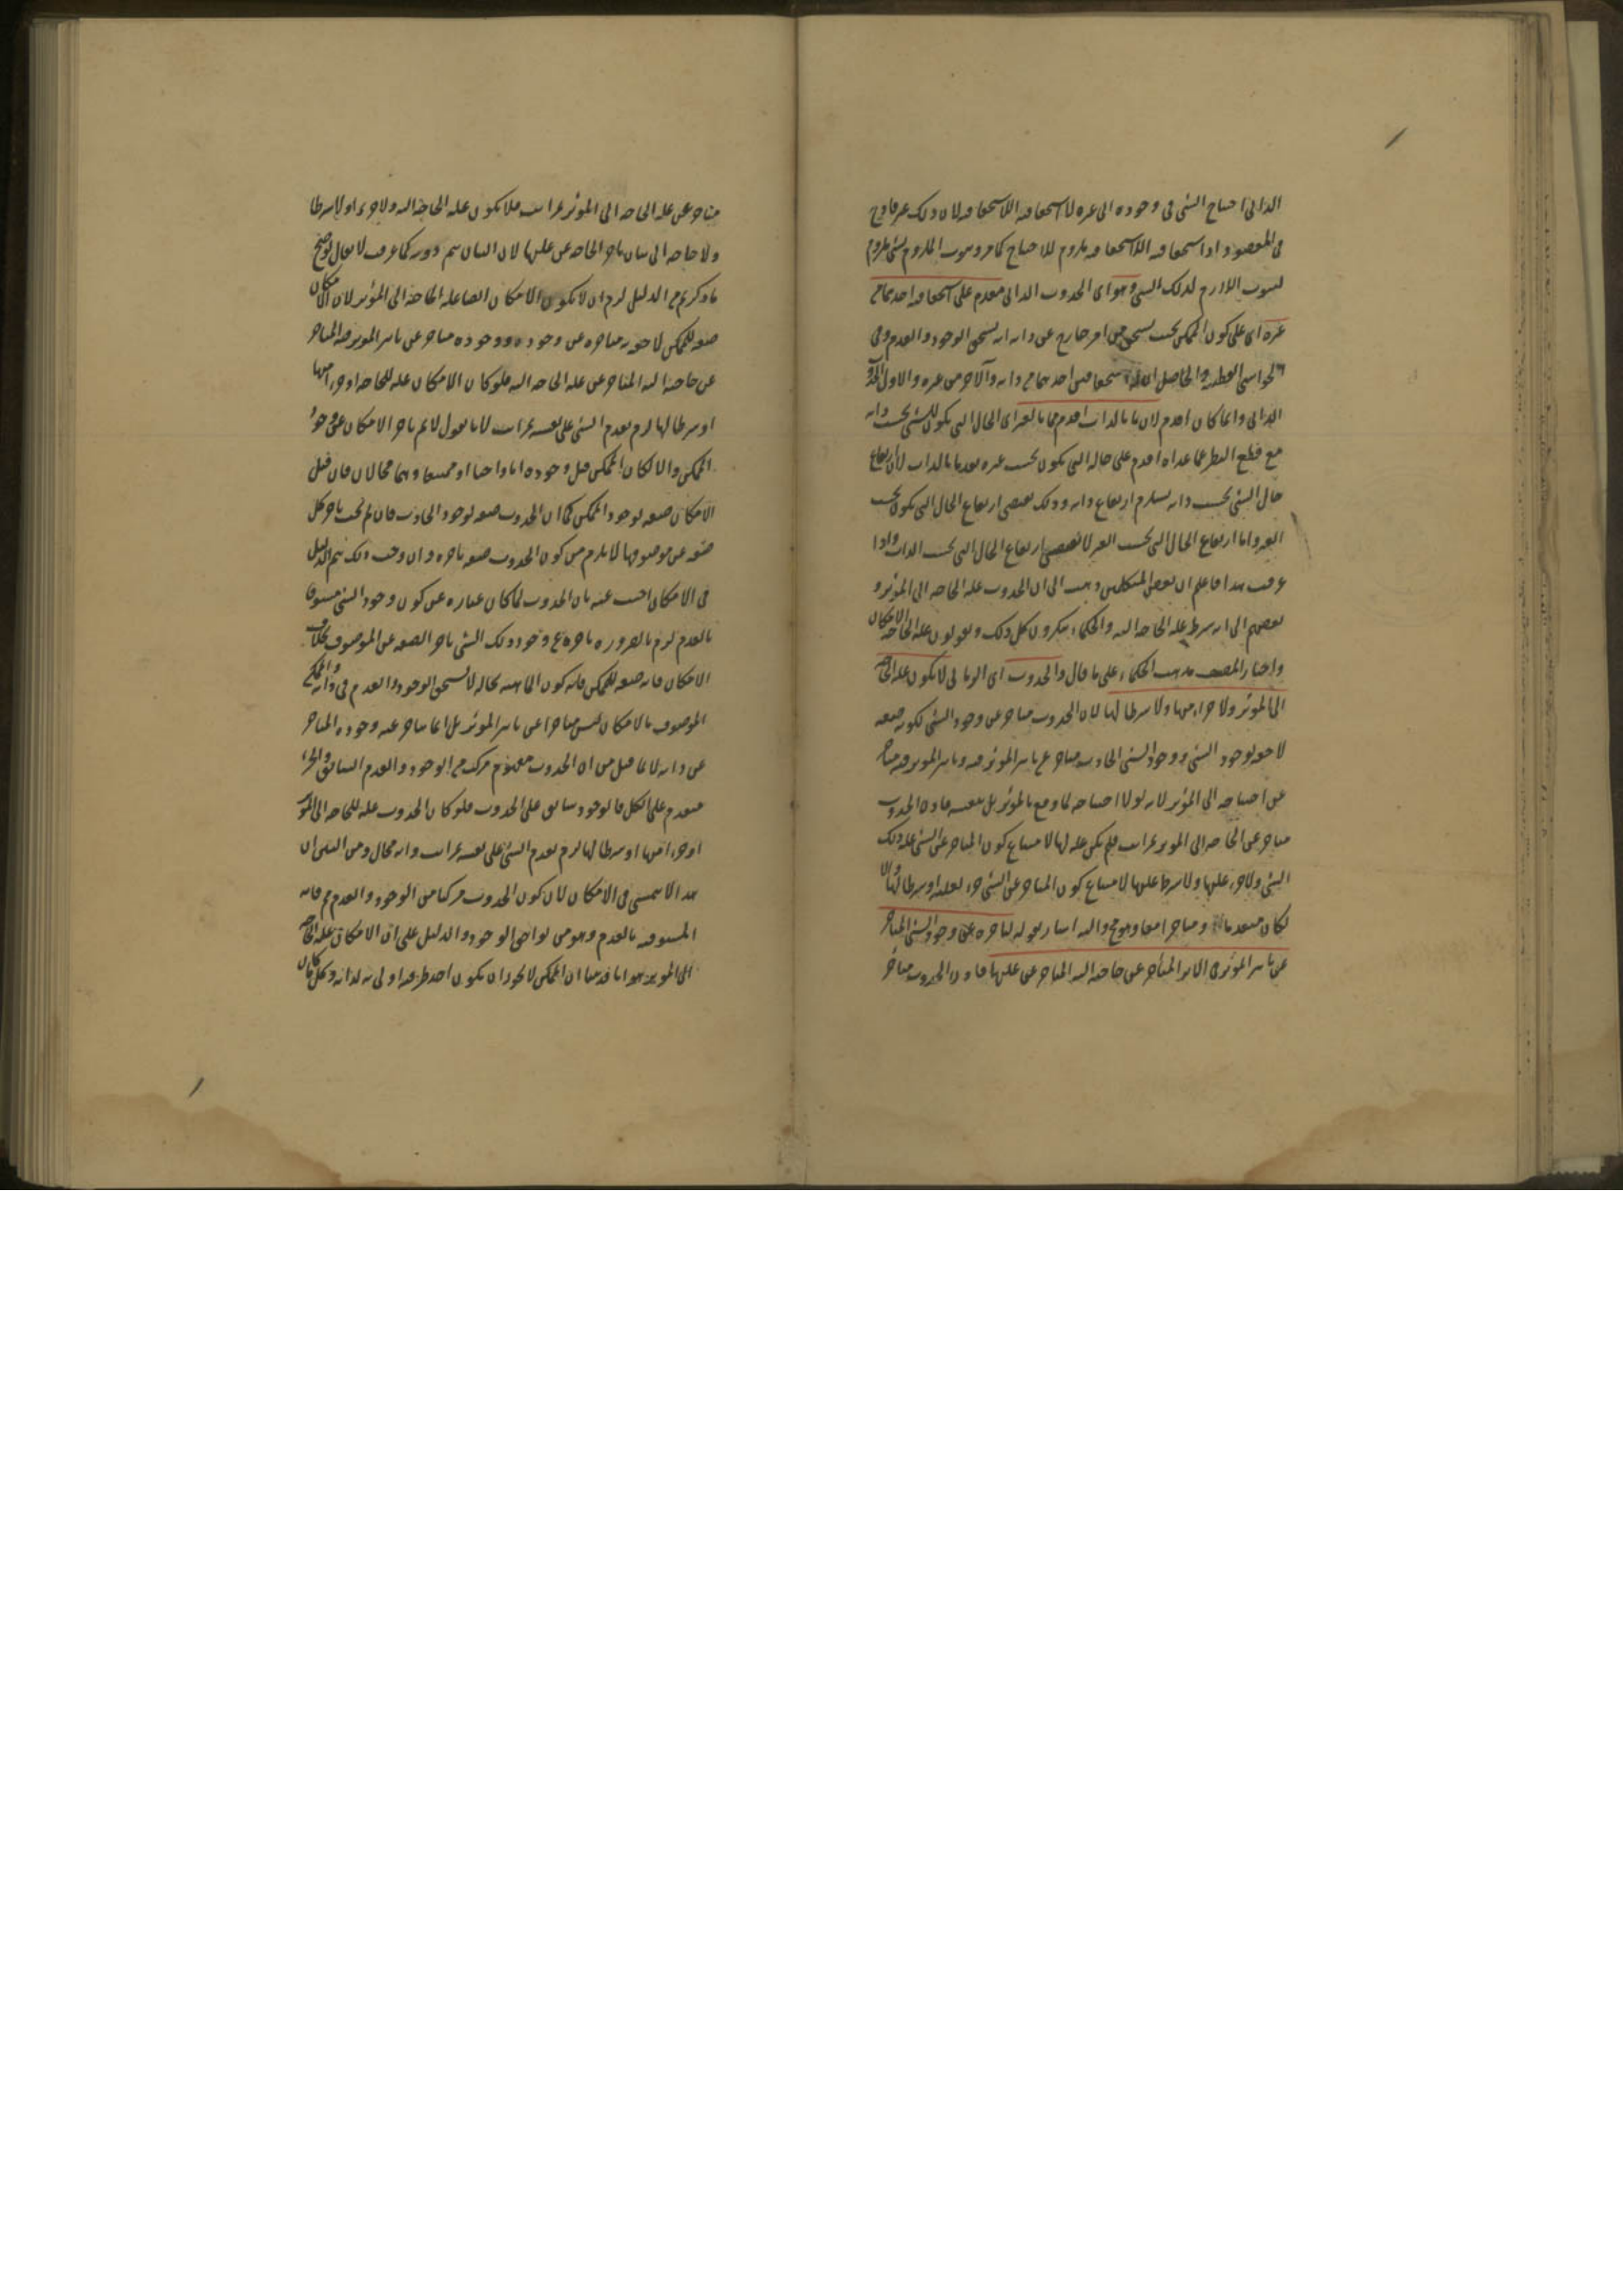 الذاتى احتياج الشئ فى وجوده الى غيره لا استحقاقيه اللااستحقاقيه لان ذلك غير قادح
فى المقصود اذا استحقاقيه اللااستحقاقيه ملزوم للاحتياج كما مر وثبوت الملزوم لشئ ملزوم
لثبوت اللازم لذلك الشئ وهو اى الحدوث الذاتى مقدم على استحقاقيه احدهما من
غيره اى على كون الممكن بحيث يستحق من امر خارج عن ذاته انه يستحق الوجود والعدم وفى
الحواشى القطبيه والحاصل ان استحقاقيه احدهما من ذاته والاخر من غيره والاول الحدوث
الذاتى وانما كان اقدم لان ما بالذات اقدم مما بالغير اى الحال التى يكون للشئ بحسب ذاته
مع قطع النظر عما عداه اقدم على حاله التى يكون بحسب غيره تقدما بالذات لان ارتفاع
حال الشئ بحسب ذاته يستلزم ارتفاع ذاته وذلك يقتضى ارتفاع الحال التى يكون بحسب
الغير واما ارتفاع الحال التى بحسب الغير لا يقتضى ارتفاع الحال التى بحسب الذات واذا
عرفت هذا فاعلم ان بعض المتكلمين ذهب الى ان الحدوث عله الحاجه الى المؤثر و
بعضهم الى انه شرط عله الحاجه اليه والحكماء ينكرون كل ذلك ويقولون عله الحاجه الامكان
واختار المصنف مذهب الحكماء على ما قال والحدوث اى الزمانى لا يكون عله الحاجه
الى المؤثر ولا جزاء منها ولا شرطا لها لان الحدوث متاخر عن وجود الشئ لكونه صفه
لاحقه لوجود الشئ ووجود الشئ الحادث متاخر عن تاثير المؤثر فيه وتاثير المؤثر فيه متاخر
عن احتياجه الى المؤثر لانه لولا احتياجه لما وقع بالمؤثر بل بنفسه فاذن الحدوث
متاخر عن الحاجه الى المؤثر بمراتب فلم يكن عله لها لامتناع كون المتاخر عن الشئ عله ذلك
الشئ ولا جزء علتها ولا شرط علتها لامتناع كون المتاخر عن الشئ جزء لعلته او شرطا لها والا
لكان متقدما ومتاخرا معا وهو مح واليه اشار بقوله لتاخره عن وجود الشئ المتاخر
عن تاثير المؤثر فى الاثر المتأخر عن حاجته اليه المتاخر عن علتها فاذن الحدوث متاخر
متاخر عن عله الحاجه الى المؤثر بمراتب فلا يكون عله الحاجه اليه ولا جزءا ولا شرطا
ولا حاجه الى بيان تاخر الحاجه عن علتها لان البيان يتم دونه كما عرفت لا يقال لو صح
ما ذكرتم من الدليل لزم ان لا يكون الامكان ايضا عله الحاجه الى المؤثر لان الامكان
صفه للممكن لاحقه متاخره عن وجوده ووجوده متاخر عن تاثير المؤثر فيه المتاخر
عن حاجته اليه المتاخر عن عله الحاجه اليه فلو كان الامكان عله للحاجه او جزءا منها
او شرطا لها لزم تقدم الشئ على نفسه بمراتب لانا نقول لا نم تاخر الامكان عن وجود
الممكن والا لكان الممكن قبل وجوده اما واجبا او ممتنعا وهما محالان فان قيل
الامكان صفه لوجود الممكن كما ان الحدوث صفه لوجود الحادث فان لم يجب تاخر كل
صفه عن موصوفها لا يلزم من كون الحدوث صفه تاخره وان وجب ذلك يتم الدليل
فى الامكان اجيب عنه بان الحدوث لما كان عباره عن كون وجود الشئ مسبوقا
بالعدم لزم بالضروره تاخره عن وجود ذلك الشئ تاخر الصفه عن الموصوف بخلاف
الامكان فانه صفه للممكن فانه كون الماهيه بحاله لا يستحق الوجود والعدم فى ذاته والممكن
الموصوف بالامكان ليس متاخرا عن تاثير المؤثر بل انما يتاخر عنه وجوده المتاخر
عن ذاته لا لما قيل من ان الحدوث مفهوم مركب من الوجود والعدم السابق والجزء
متقدم على الكل فالوجود سابق على الحدوث فلو كان الحدوث عله للحاجه الى المؤثر
او جزءا منها او شرطا لها لزم تقدم الشئ على نفسه بمراتب وانه محال ومن البين ان
هذا لا يتمشى فى الامكان لان كون الحدوث مركبا من الوجود والعدم مم فانه
المسبوقيه بالعدم وهو من لواحق الوجود والدليل على ان الامكان عله الحاجه
الى المؤثر هو انا قد بينا ان الممكن لا يجوز ان يكون احد طرفيه اولى به لذاته وكل ما كان